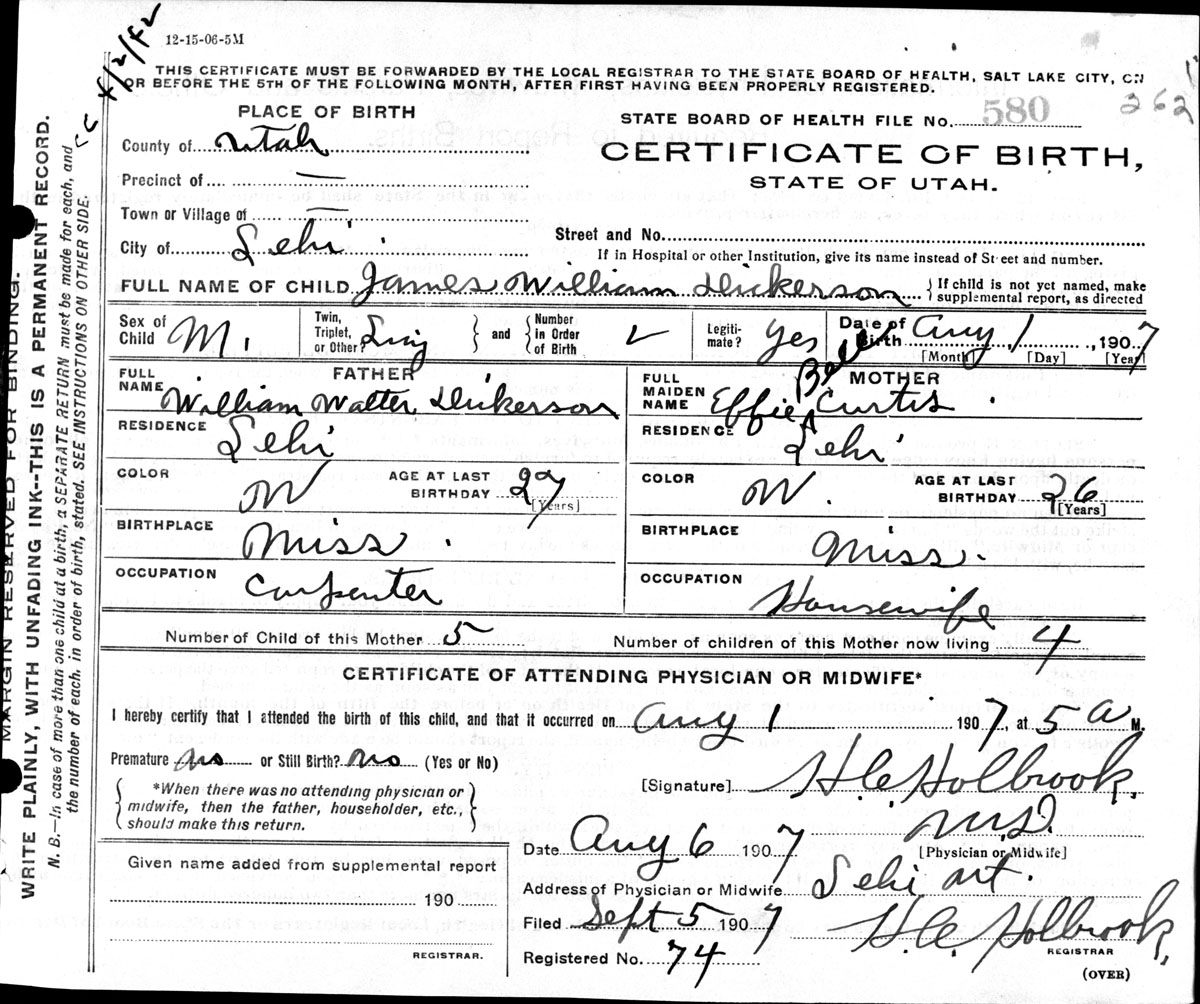 12-15-06-5M
THIS CERTIFICATE MUST BE FORWARDED BY THE LOCAL REGISTRAR TO THE STATE BOARD OF HEALTH, SALT LAKE CITY, ON
OR BEFORE THE 5TH OF THE FOLLOWING MONTH, AFTER FIRST HAVING BEEN PROPERLY REGISTERED.
262
PLACE OF BIRTH
STATE BOARD OF HEALTH FILE No. 580
County of Utah
CERTIFICATE OF BIRTH,
STATE OF UTAH.
Precinct of —
Town or Village of —
City of Lehi.
Street and No.
If in Hospital or other Institution, give its name instead of Street and number.
FULL NAME OF CHILD James William Dickerson
{ If child is not yet named, make
supplemental report, as directed
Sex of Child M.
Twin, Triplet, or Other? Sing } and { Number in Order of Birth
Legitimate? Yes
Date of Birth Aug 1, 1907
[Month] [Day] [Year]
FATHER
FULL NAME William Walter Dickerson
RESIDENCE Lehi
COLOR W
AGE AT LAST BIRTHDAY 27
[Years]
BIRTHPLACE Miss.
OCCUPATION Carpenter
MOTHER
FULL MAIDEN NAME Effie Bell Curtis.
RESIDENCE Lehi
COLOR W.
AGE AT LAST BIRTHDAY 26
[Years]
BIRTHPLACE Miss.
OCCUPATION Housewife
Number of Child of this Mother 5
Number of children of this Mother now living 4
CERTIFICATE OF ATTENDING PHYSICIAN OR MIDWIFE*
I hereby certify that I attended the birth of this child, and that it occurred on Aug 1 1907, at 5 a M.
Premature no or Still Birth? no (Yes or No)
{ *When there was no attending physician or
midwife, then the father, householder, etc.,
should make this return. }
[Signature] H.C. Holbrook,
M.D.
[Physician or Midwife]
Date Aug 6 1907
Address of Physician or Midwife Lehi Ut.
Filed Sept 5 1907
H.C. Holbrook,
REGISTRAR
Registered No. 74
(OVER)
Given name added from supplemental report
190
REGISTRAR.
MARGIN RESERVED FOR BINDING.
WRITE PLAINLY, WITH UNFADING INK--THIS IS A PERMANENT RECORD.
N. B.—In case of more than one child at a birth, a SEPARATE RETURN must be made for each, and
the number of each, in order of birth, stated. SEE INSTRUCTIONS ON OTHER SIDE.